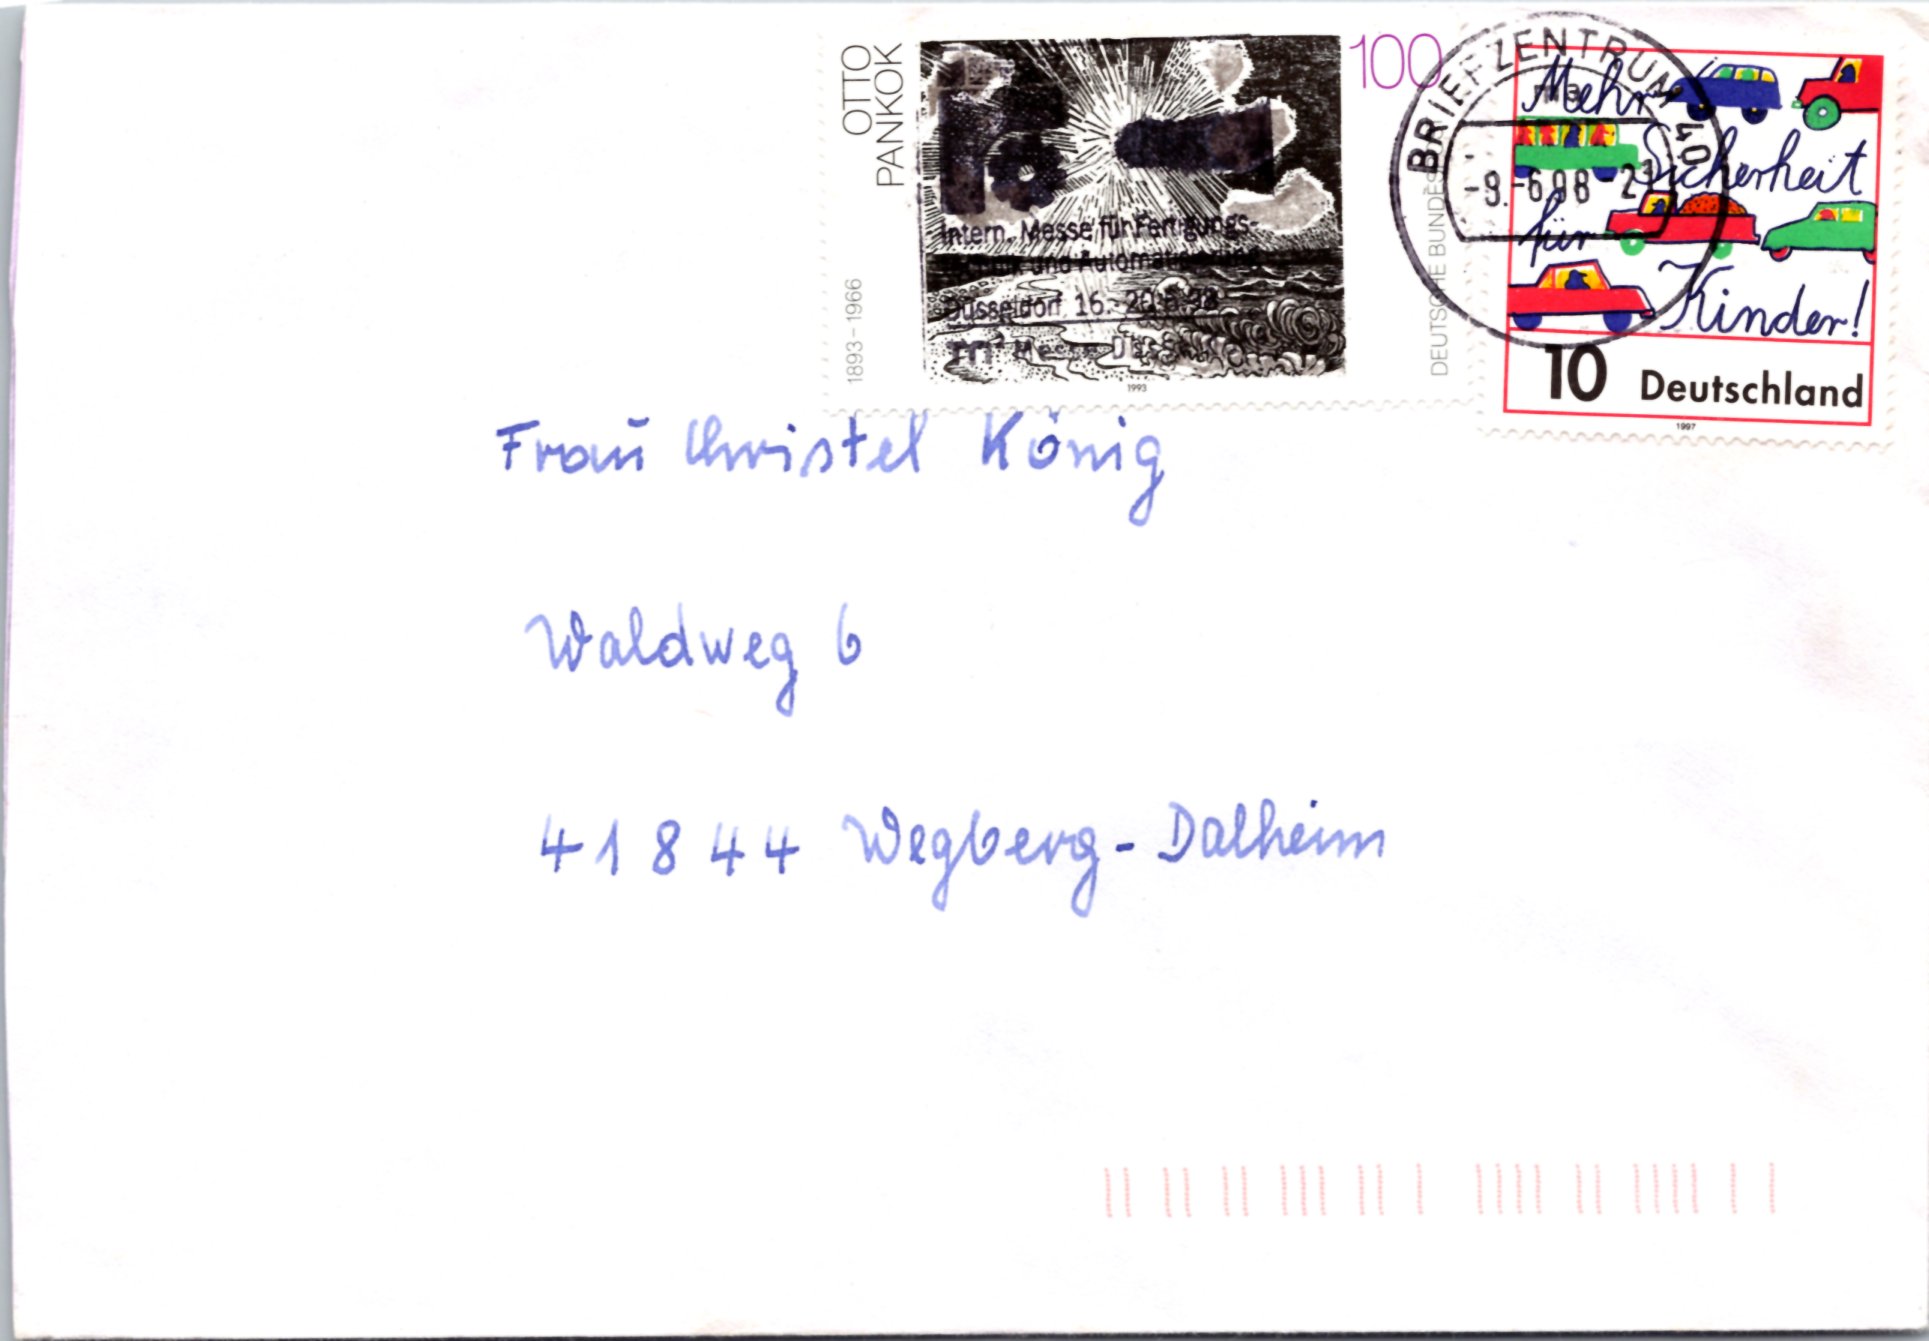 OTTO
PANKOK
1893 – 1966
100
DEUTSCHE
1993
Intern. Messe für Fertigungs-
und Automatisierung
Düsseldorf, 16. - 20.6.98
Messe
BRIEFZENTRUM 40
-9.-6.98-21
Mehr
Sicherheit
für
Kinder!
10 Deutschland
1997
Frau Christel König
Waldweg 6
41844 Wegberg-Dalheim